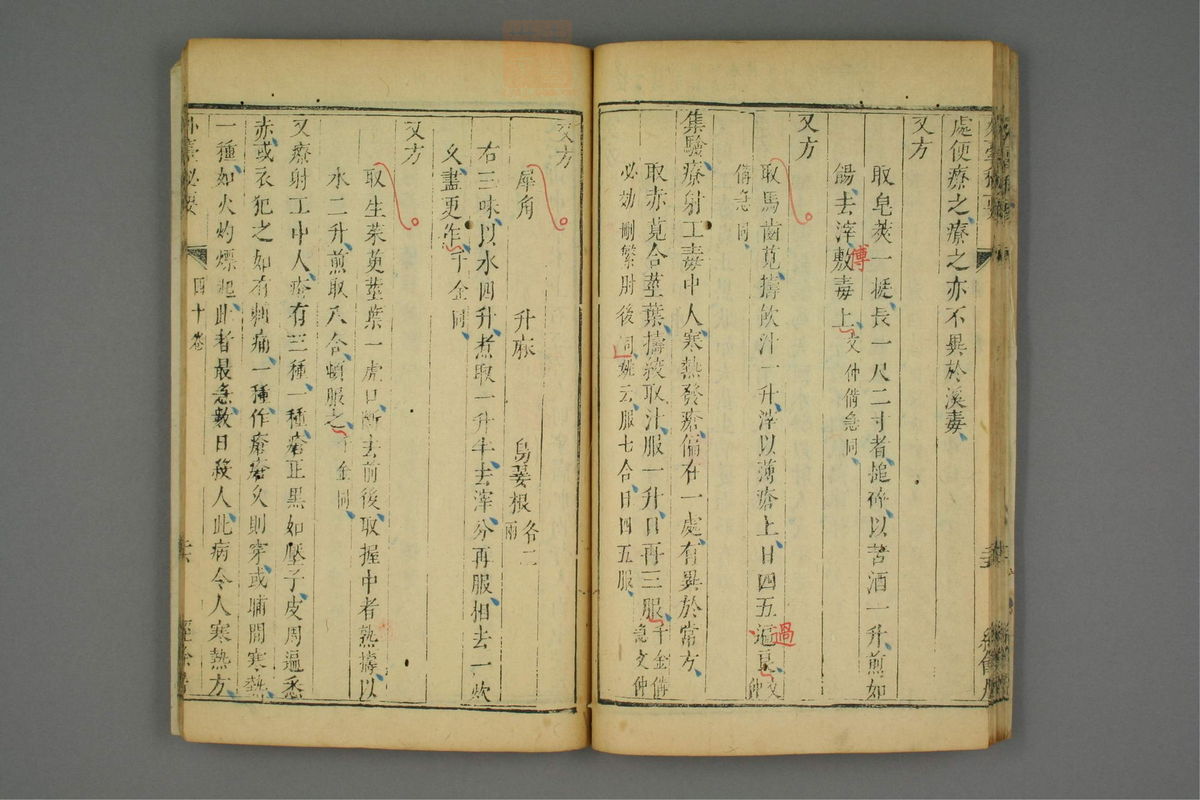 處便療之療之亦不異於溪毒
又方
取皂莢一挺長一尺二寸者搥碎以苦酒一升煎如
餳去滓敷毒上文仲備急同
傅
又方
取馬齒莧擣飲汁一升滓以薄瘡上日四五遍良文仲
過
備急同
集驗療射工毒中人寒熱發瘡偏在一處有異於常方
取赤莧合莖葉擣絞取汁服一升日再三服千金備急文仲
必効刪繁肘後同姚云服七合日四五服
又方
犀角 升麻 烏翣根各二兩
右三味以水四升煮取一升半去滓分再服相去一炊
久盡更作千金同
又方
取生茱萸莖葉一虎口斷去前後取握中者熟擣以
水二升煎取八合頓服之千金同
又療射工中人瘡有三種一種瘡正黑如黶子皮周遍悉
赤或衣犯之如有刺痛一種作瘡瘡久則穿或晡間寒熱
一種如火灼熛起此者最急數日殺人此病令人寒熱方
外臺必要
四十卷